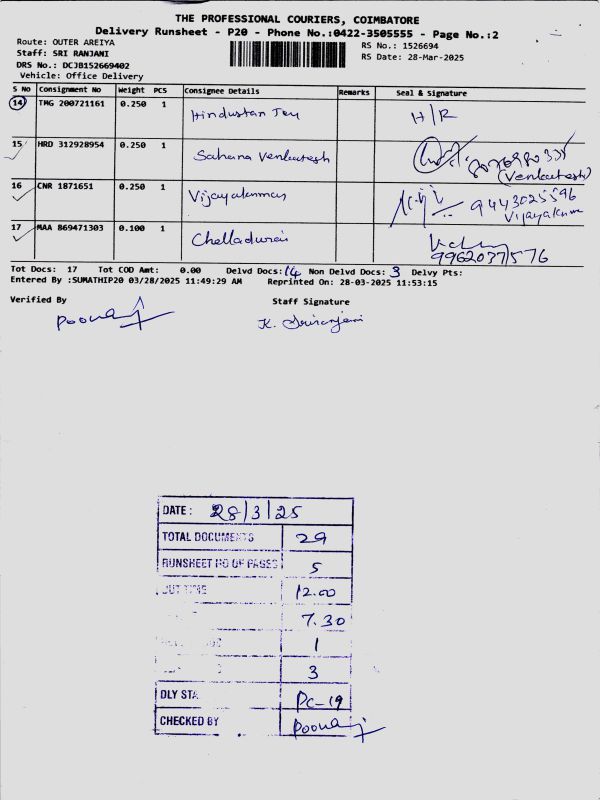 THE PROFESSIONAL COURIERS, COIMBATORE
Delivery Runsheet - P20 - Phone No.:0422-3505555 - Page No.:2
Route: OUTER AREIYA
Staff: SRI RANJANI
DRS No.: DCJB152669402
Vehicle: Office Delivery
RS No.: 1526694
RS Date: 28-Mar-2025
S No Consignment No Weight PCS Consignee Details Remarks Seal & Signature
14 TMG 200721161 0.250 1 Hindustan H/R
15 HRD 312928954 0.250 1 Sahana Venkatesh (Venkatesh)
16 CNR 1871651 0.250 1 Vijayakumar 9443025596 Vijayakumar
17 MAA 869471303 0.100 1 Chelladurai 9962037576
Tot Docs: 17 Tot COD Amt: 0.00 Delvd Docs: 14 Non Delvd Docs: 3 Delvy Pts:
Entered By :SUMATHIP20 03/28/2025 11:49:29 AM Reprinted On: 28-03-2025 11:53:15
Verified By Staff Signature
K. Sriranjani
DATE: 28/3/25
TOTAL DOCUMENTS 29
RUNSHEET NO OF PAGES 5
OUT TIME 12.00
7.30
1
3
DLY STA PC-19
CHECKED BY